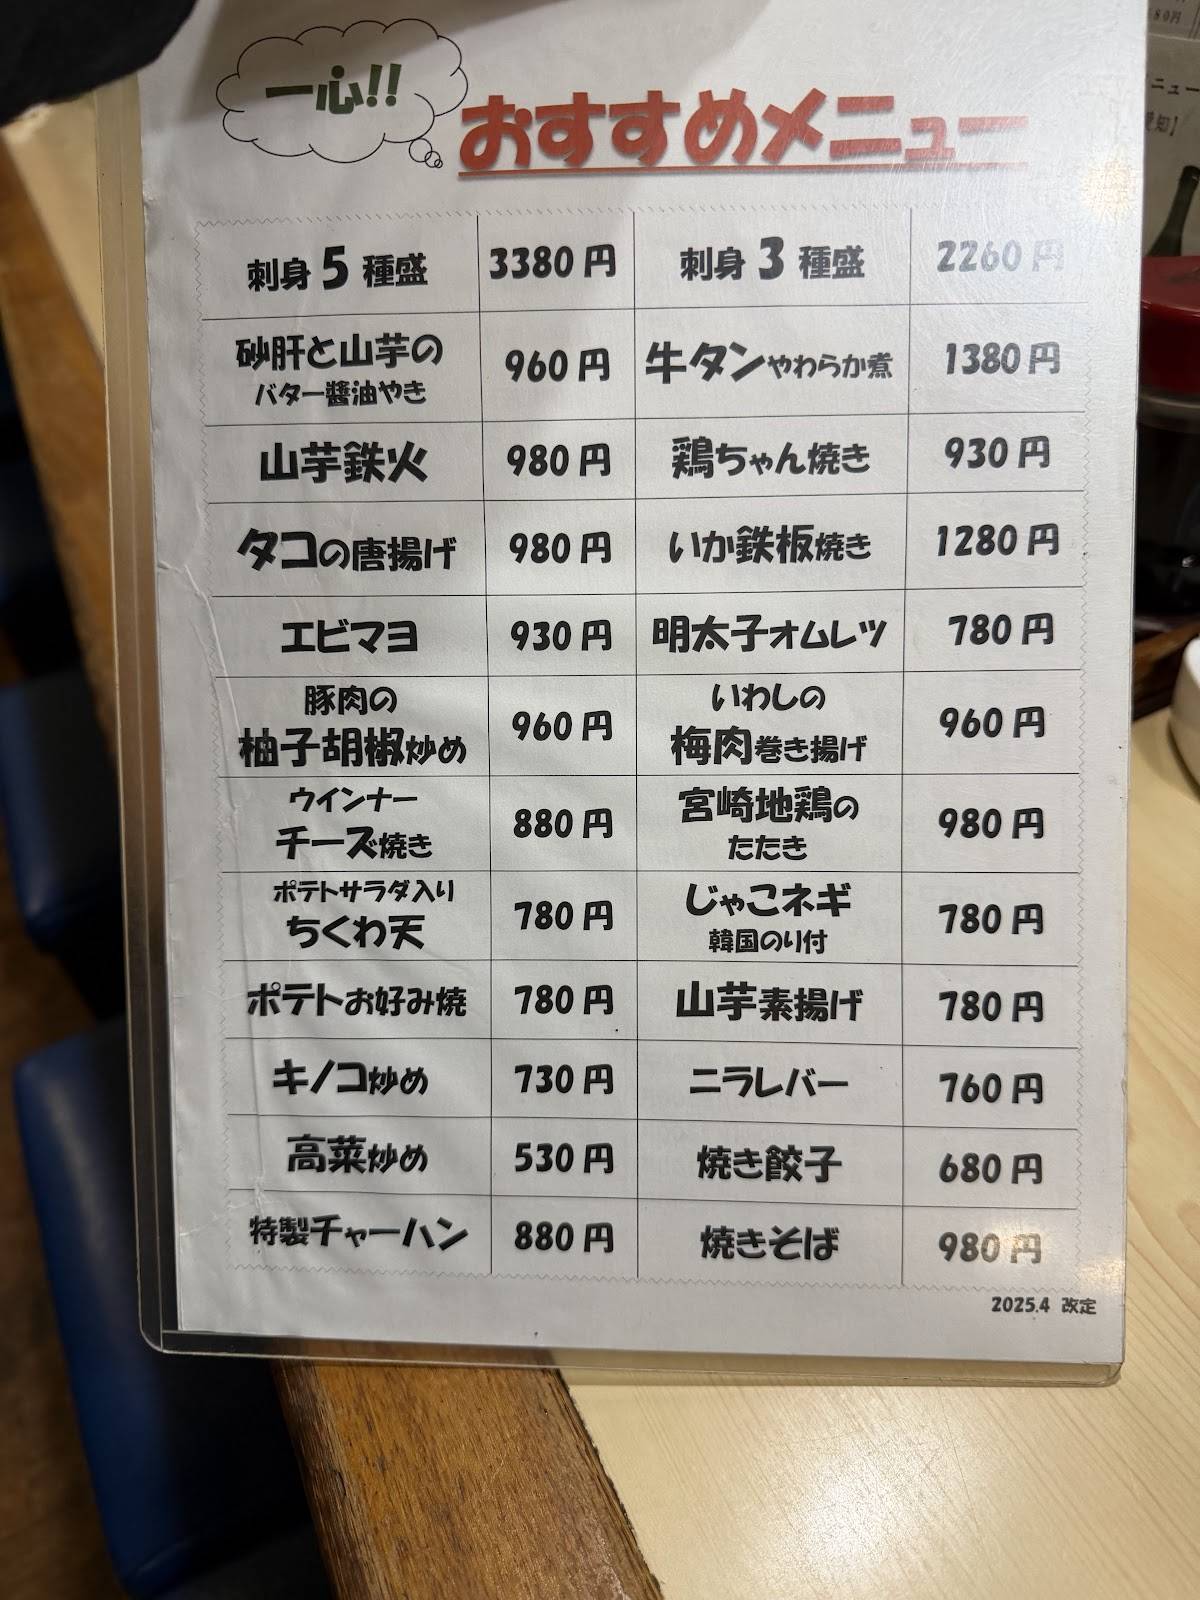 一心!!
おすすめメニュー
刺身5種盛 3380円 刺身3種盛 2260円
砂肝と山芋の
バター醬油やき 960円 牛タンやわらか煮 1380円
山芋鉄火 980円 鶏ちゃん焼き 930円
タコの唐揚げ 980円 いか鉄板焼き 1280円
エビマヨ 930円 明太子オムレツ 780円
豚肉の
柚子胡椒炒め 960円
いわしの
梅肉巻き揚げ 960円
ウインナー
チーズ焼き 880円
宮崎地鶏の
たたき 980円
ポテトサラダ入り
ちくわ天 780円
じゃこネギ
韓国のり付 780円
ポテトお好み焼 780円 山芋素揚げ 780円
キノコ炒め 730円 ニラレバー 760円
高菜炒め 530円 焼き餃子 680円
特製チャーハン 880円 焼きそば 980円
2025.4 改定